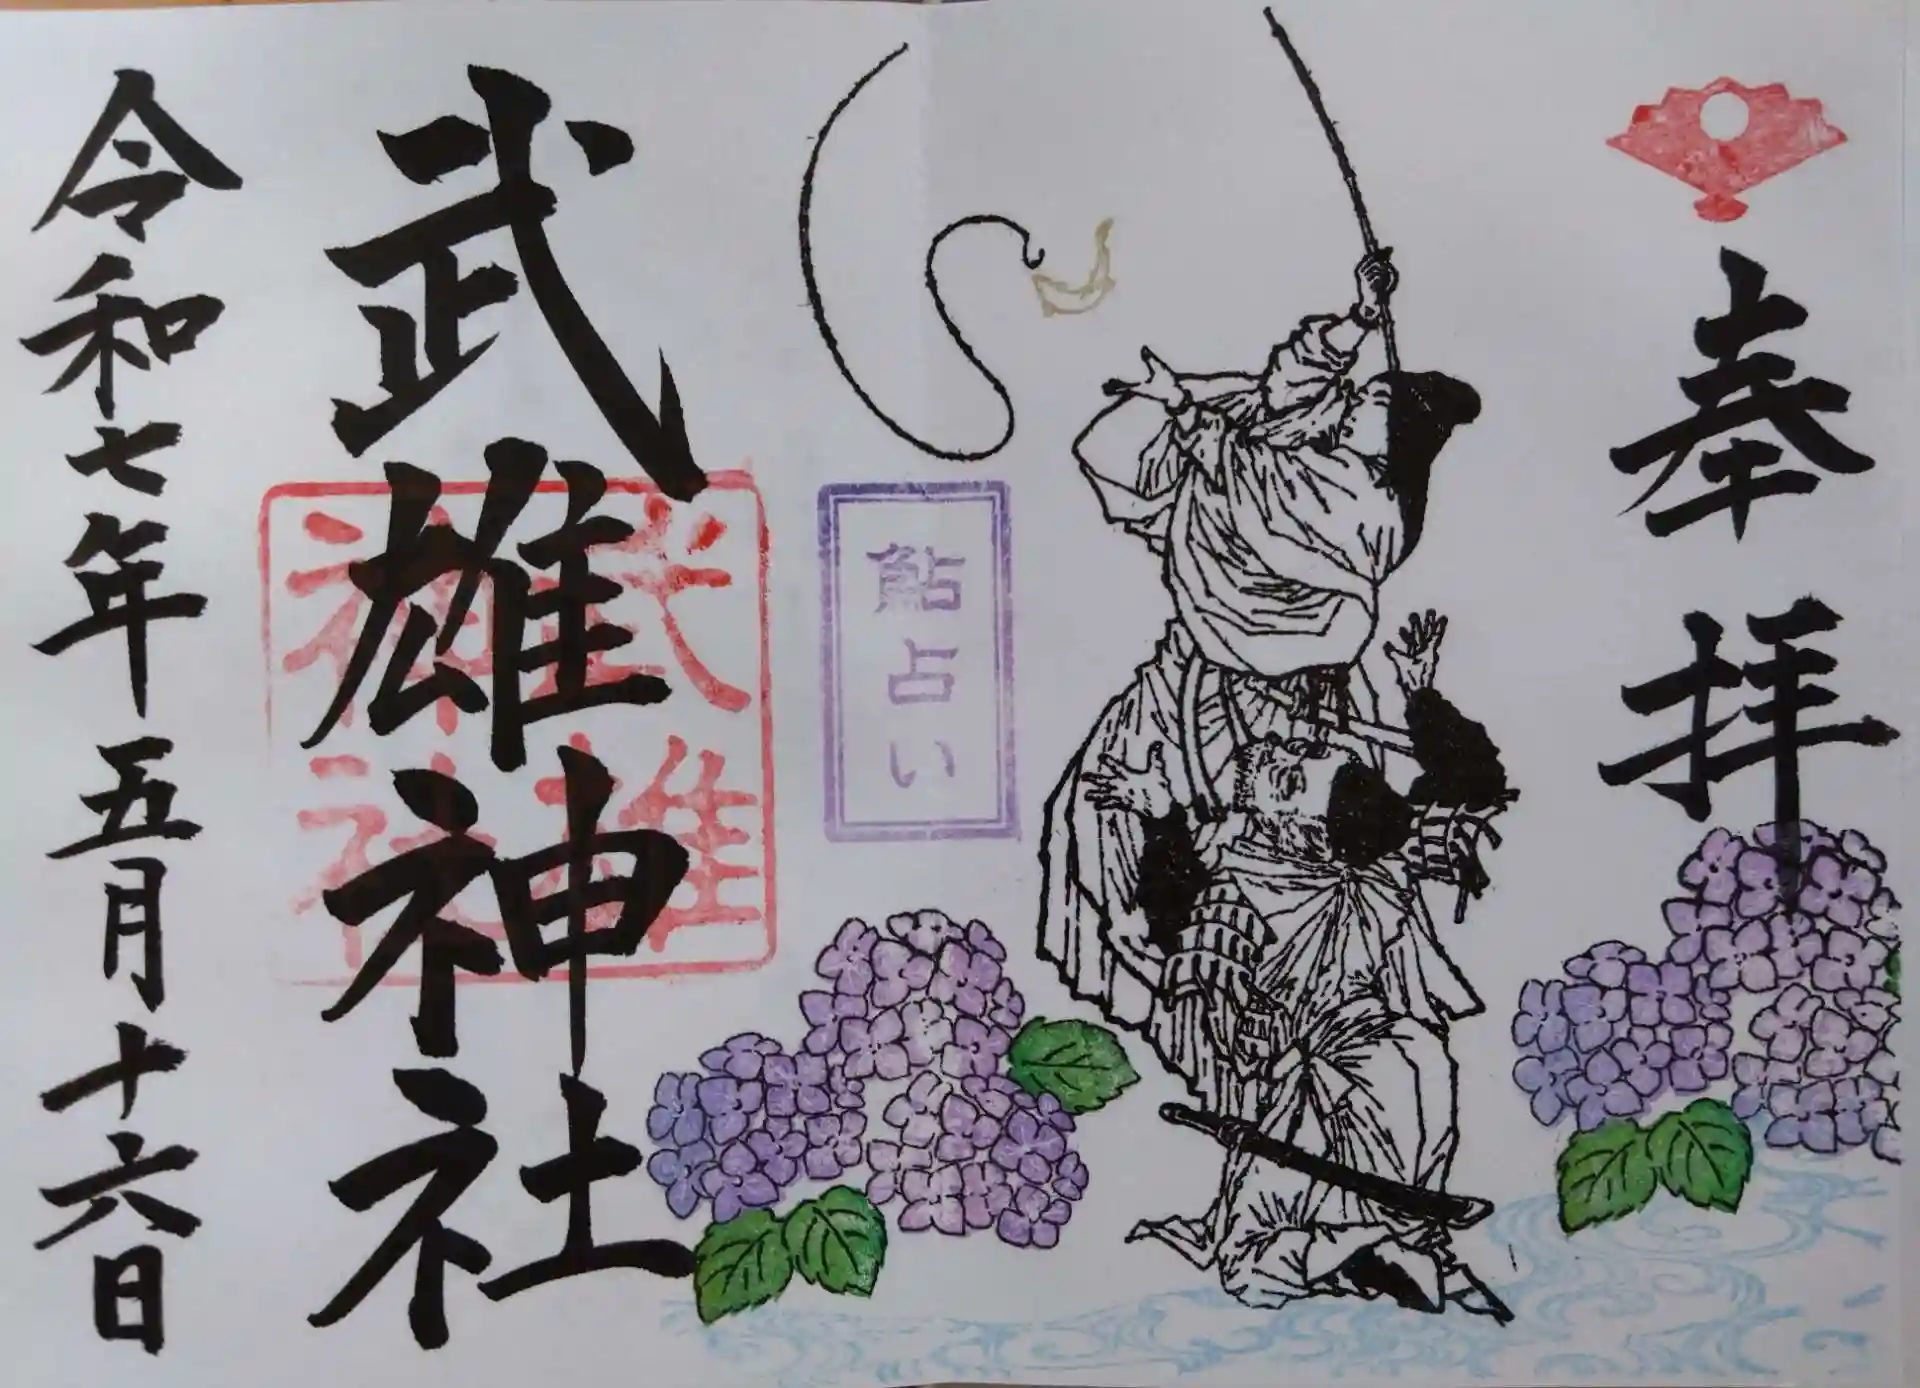 奉拝
鮎占い
武雄神社
武雄神社
令和七年五月十六日